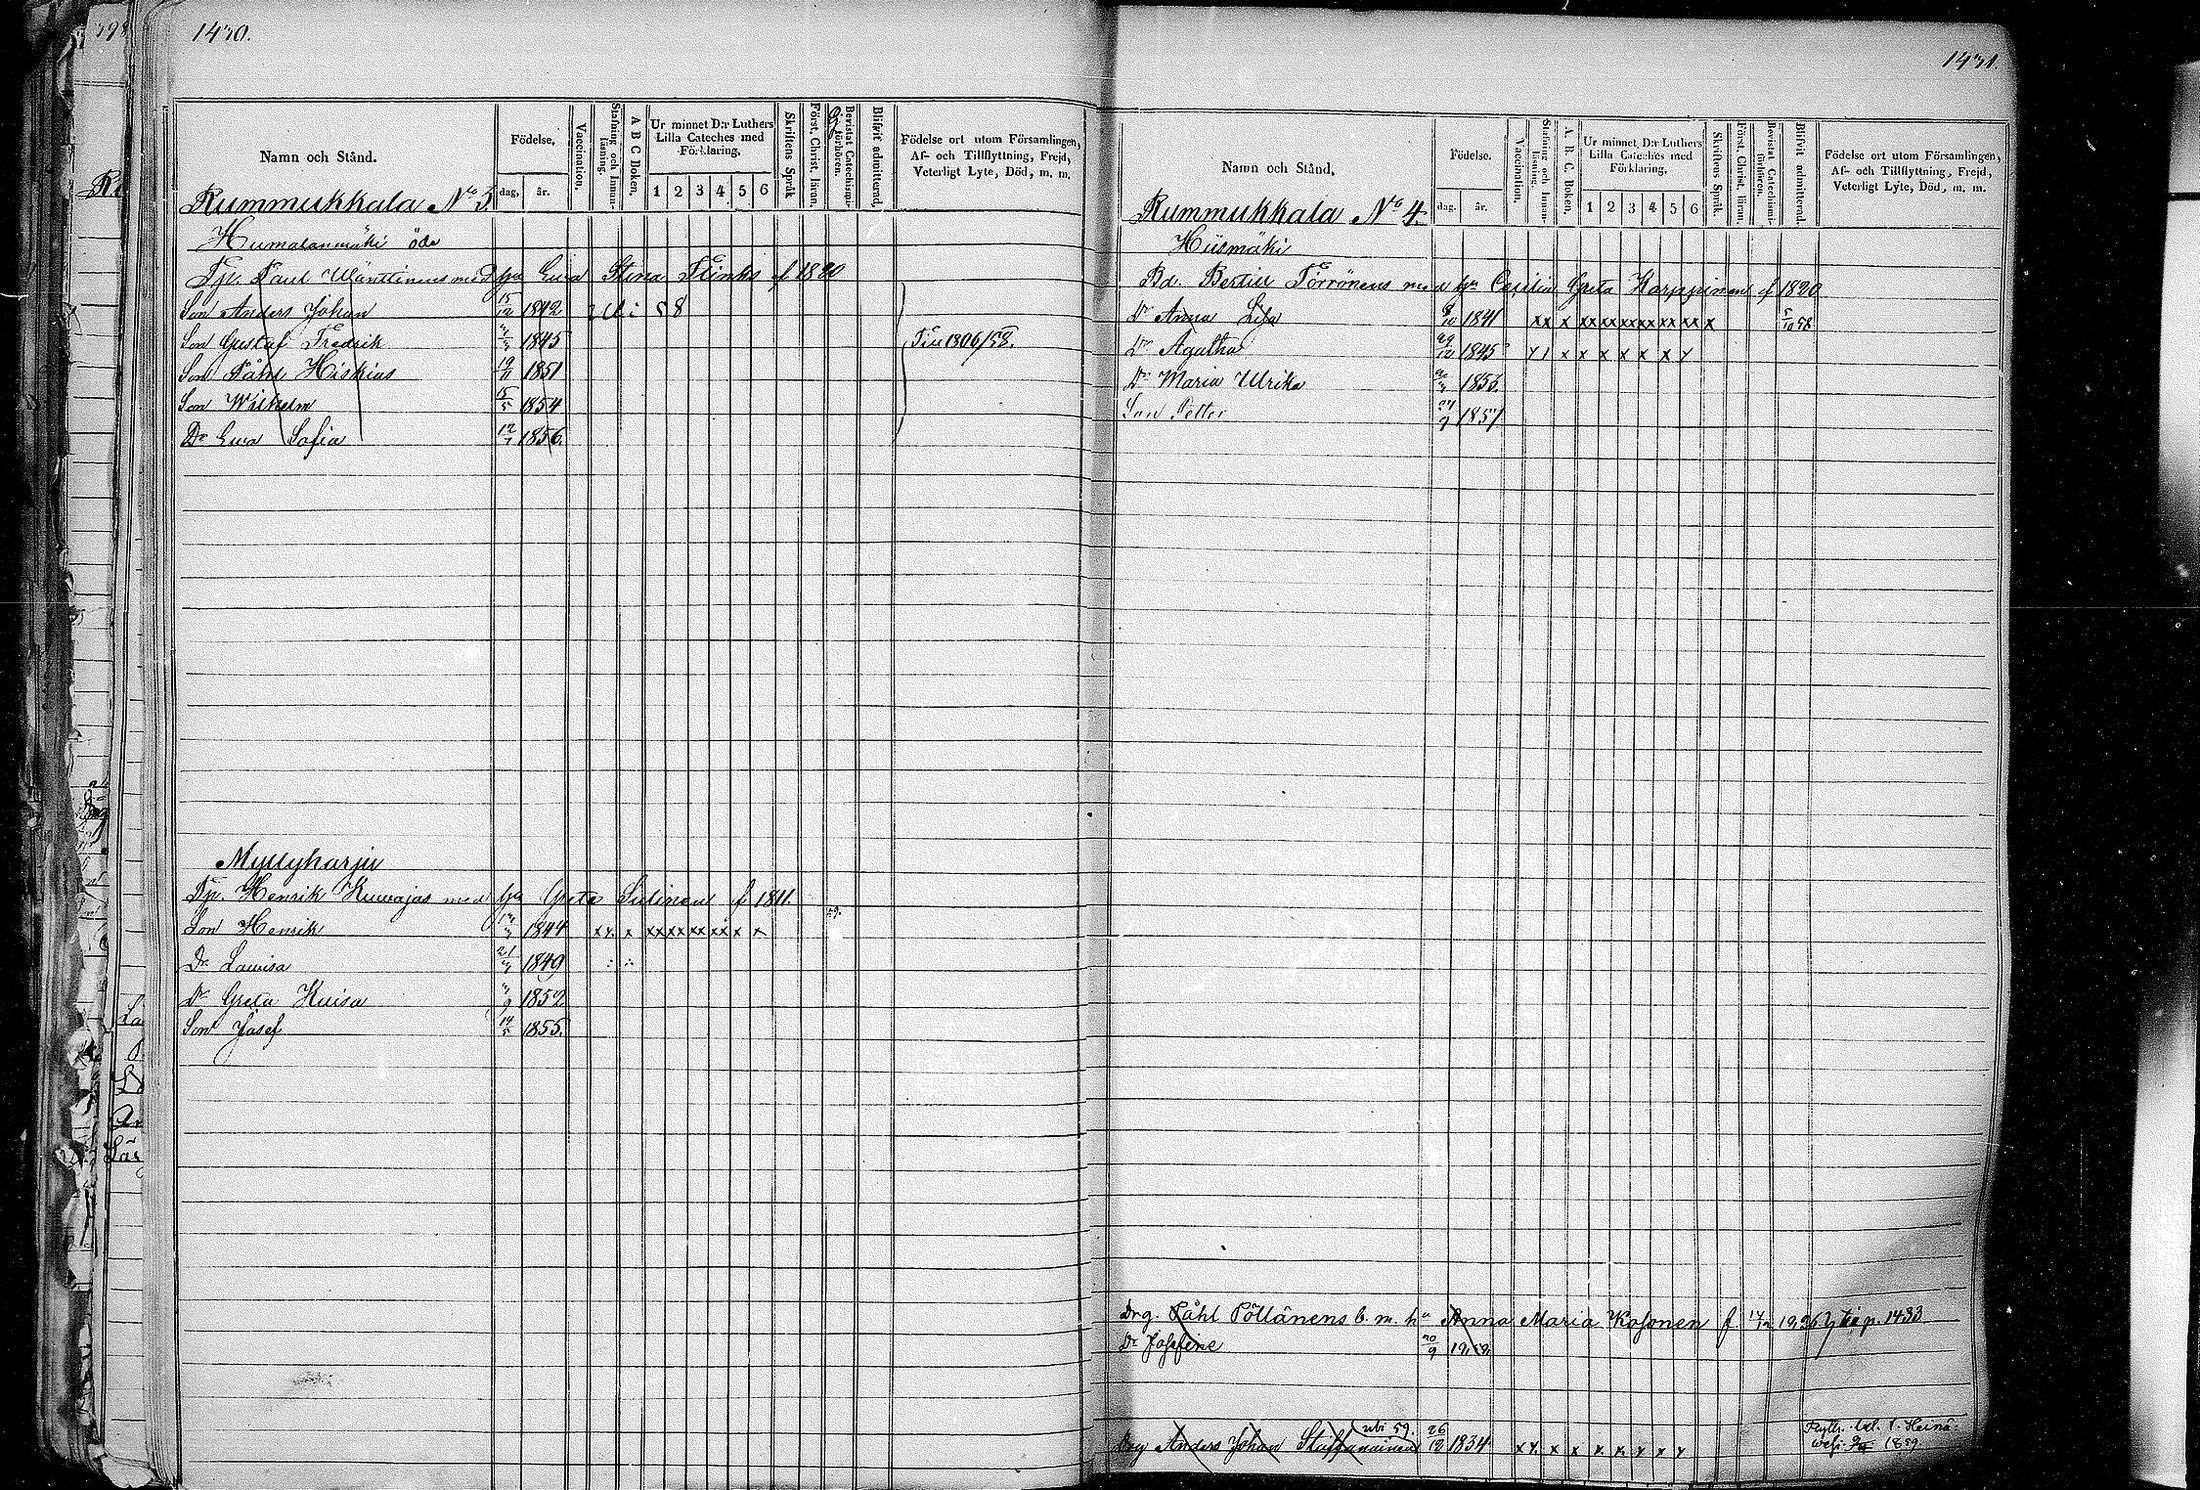 1430.
Namn och Stånd.
Födelse.
dag.
år.
Vaccination.
Stafning och Innan-läsning.
A B C Boken.
Ur minnet D:r Luthers Lilla Cateches med Förklaring.
1 2 3 4 5 6
Skriftens Språk
Först. Christ. läran.
Bevistat Catechismi-förhören.
Blifvit admitterad.
Födelse ort utom Församlingen, Af- och Tillflyttning, Frejd, Veterligt Lyte, Död, m. m.
Rummukkala No 3.
Humalanmäki öde
Tp. Paul Wänttinens med hu Ewa Stina Flinks f 1820
Son Anders Johan 15/12 1842
Son Gustaf Fredrik 1845
Son Påhl Hiskias 19/11 1851
Son Wilhelm 15/5 1854
Dr Ewa Sofia 12/7 1856.
1306/58.
Myllyharju
Tp. Henrik Kuwajas med hu Greta Sutinen f 1811.
Son Henrik 1844 x x x xx xx xx x x x x
Dr Lowisa 21 1849
Dr Greta Kaisa 1852
Son Josef 14/5 1855.
1431.
Namn och Stånd.
Födelse.
dag.
år.
Vaccination.
Stafning och Innan-läsning.
A. B. C. Boken.
Ur minnet D:r Luthers Lilla Cateches med Förklaring.
1 2 3 4 5 6
Skriftens Språk.
Först. Christ. läran.
Bevistat Catechismi-förhören.
Blifvit admitterad.
Födelse ort utom Församlingen, Af- och Tillflyttning, Frejd, Veterligt Lyte, Död, m. m.
Rummukkala No 4.
Hiismäki
Bd. Bertill Törrönens med hu Cecilia Greta Karppinen f 1820
Dr Anna Lisa 8/10 1841 xx x xx xx xx xx xx xx x 5/10 58
Dr Agatha 29/12 1845 x x x x x x
Dr Maria Ulrika 1853.
Son Petter 1857
Drg. Påhl Pöllänens b. m. hu Anna Maria Kosonen f 1826 p. 1433
Dr Josefine 20/9
Drg Anders Johan 26/12 1834 x x x x x x x x x
ubi 59.
Flytt. bet. t. Heinä-
wesi 1859.